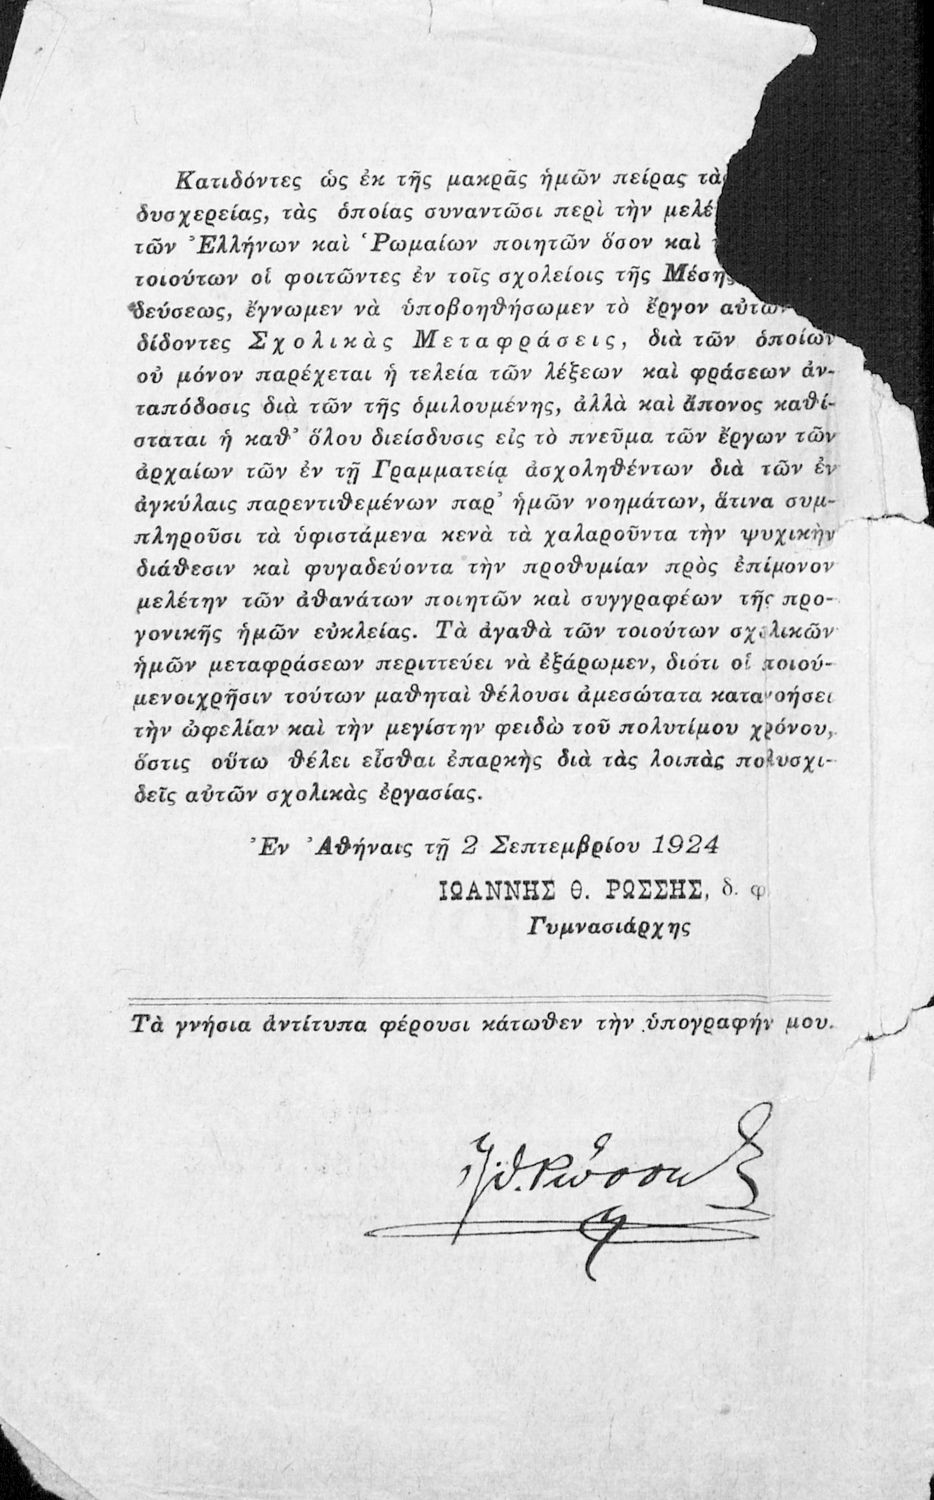 Κατιδόντες ὡς ἐκ τῆς μακρᾶς ἡμῶν πείρας τὰς
δυσχερείας, τὰς ὁποίας συναντῶσι περὶ τὴν
τῶν Ἑλλήνων καὶ Ῥωμαίων ποιητῶν ὅσον καὶ
τοιούτων οἱ φοιτῶντες ἐν τοῖς σχολείοις τῆς Μέσης
δεύσεως, ἔγνωμεν νὰ ὑποβοηθήσωμεν τὸ ἔργον αὐτῶν
δίδοντες Σχολικὰς Μεταφράσεις, διὰ τῶν ὁποίων
οὐ μόνον παρέχεται ἡ τελεία τῶν λέξεων καὶ φράσεων ἀν-
ταπόδοσις διὰ τῶν τῆς ὁμιλουμένης, ἀλλὰ καὶ ἄπονος καθί-
σταται ἡ καθ’ ὅλου διείσδυσις εἰς τὸ πνεῦμα τῶν ἔργων τῶν
ἀρχαίων τῶν ἐν τῇ Γραμματείᾳ ἀσχοληθέντων διὰ τῶν ἐν
ἀγκύλαις παρεντιθεμένων παρ’ ἡμῶν νοημάτων, ἅτινα συμ-
πληροῦσι τὰ ὑφιστάμενα κενὰ τὰ χαλαροῦντα τὴν ψυχικὴν
διάθεσιν καὶ φυγαδεύοντα τὴν προθυμίαν πρὸς ἐπίμονον
μελέτην τῶν ἀθανάτων ποιητῶν καὶ συγγραφέων τῆς προ-
γονικῆς ἡμῶν εὐκλείας. Τὰ ἀγαθὰ τῶν τοιούτων σχολικῶν
ἡμῶν μεταφράσεων περιττεύει νὰ ἐξάρωμεν, διότι οἱ ποιού-
μενοιχρῆσιν τούτων μαθηταὶ θέλουσι ἀμεσώτατα κατανοήσει
τὴν ὠφελίαν καὶ τὴν μεγίστην φειδὼ τοῦ πολυτίμου χρόνου,
ὅστις οὕτω θέλει εἶσθαι ἐπαρκὴς διὰ τὰς λοιπὰς πολυσχι-
δεῖς αὐτῶν σχολικὰς ἐργασίας.
Ἐν Ἀθήναις τῇ 2 Σεπτεμβρίου 1924
ΙΩΑΝΝΗΣ Θ. ΡΩΣΣΗΣ, δ. φ.
Γυμνασιάρχης
Τὰ γνήσια ἀντίτυπα φέρουσι κάτωθεν τὴν ὑπογραφήν μου.
Ἰ. Θ. Ῥώσσης